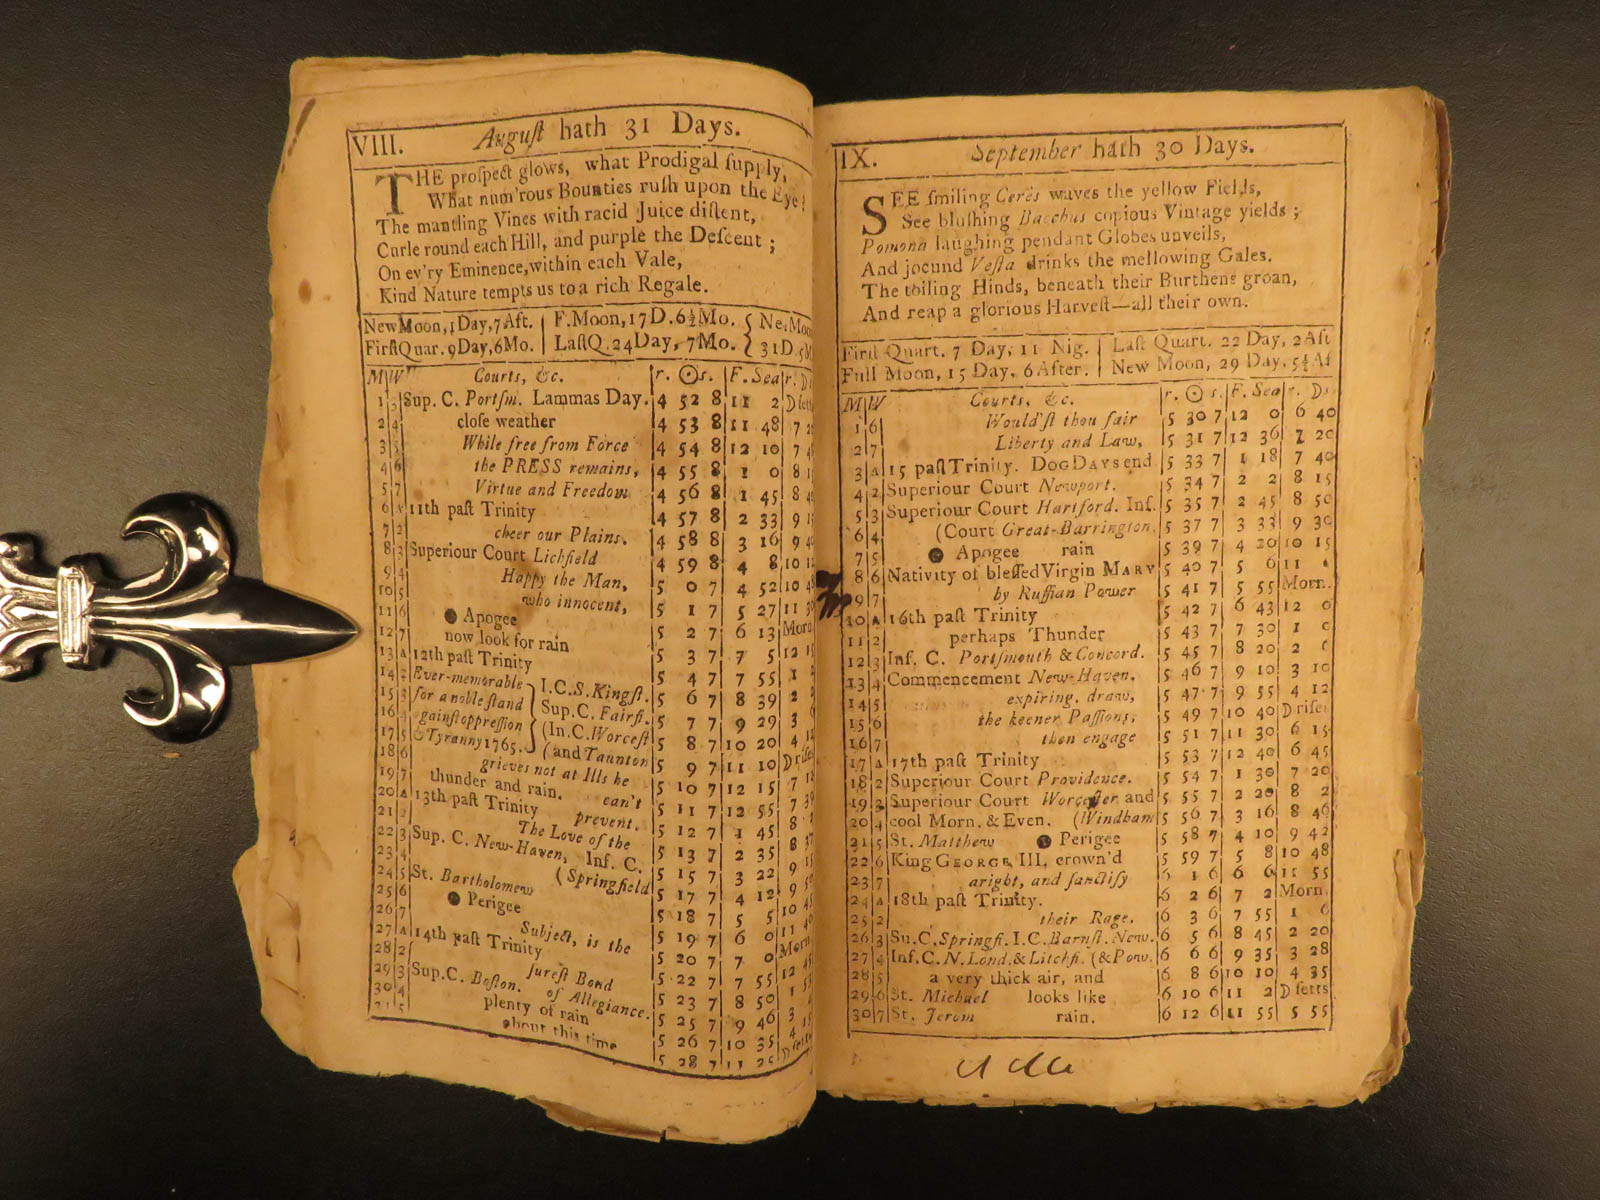 VIII. August hath 31 Days.
THE prospect glows, what Prodigal supply,
What num'rous Bounties rush upon the Eye!
The mantling Vines with racid Juice distent,
Curle round each Hill, and purple the Descent;
On ev'ry Eminence, within each Vale,
Kind Nature tempts us to a rich Regale.
New Moon, 1 Day, 7 Aft. | F. Moon, 17 D. 6½ Mo. { Ne. Moo
First Quar. 9 Day, 6 Mo. | Last Q. 24 Day, 7 Mo. { 31 D. 5 M
M W Courts, &c. r. ☉ s. F. Sea r. D
1 3 Sup. C. Portsm. Lammas Day. 4 52 8 11 2 D sett
2 4 close weather 4 53 8 11 48 7 2
3 5 While free from Force 4 54 8 12 10 7 4
4 6 the PRESS remains, 4 55 8 1 0 8 1
5 7 Virtue and Freedom 4 56 8 1 45 8 4
6 A 11th past Trinity 4 57 8 2 33 9 1
7 2 cheer our Plains. 4 58 8 3 16 9 4
8 3 Superiour Court Lichfield 4 59 8 4 8 10 1
9 4 Happy the Man, 5 0 7 4 52 10 4
10 5 who innocent, 5 1 7 5 27 11 3
11 6 ● Apogee 5 2 7 6 13 Morn
12 7 now look for rain 5 3 7 7 5 12 1
13 A 12th past Trinity 5 4 7 7 55 1
14 2 Ever-memorable I. C. S. Kingst. 5 6 7 8 39 2
15 3 for a noble stand Sup. C. Fairfi. 5 7 7 9 29 3
16 4 gainst oppression (In. C. Worcest 5 8 7 10 20 4 1
17 5 & Tyranny 1765. (and Taunton 5 9 7 11 10 D rise
18 6 grieves not at Ills he 5 10 7 12 15 7 1
19 7 thunder and rain. can't 5 11 7 12 55 7 3
20 A 13th past Trinity prevent. 5 12 7 1 45 8
21 2 The Love of the 5 13 7 2 35 8 3
22 3 Sup. C. New-Haven, Inf. C. 5 15 7 3 22 9
23 4 (Springfield 5 17 7 4 12 9 5
24 5 St. Bartholomew 5 18 7 5 5 10 4
25 6 ● Perigee 5 19 7 6 0 11 4
26 7 Subject, is the 5 20 7 7 0 Morn
27 A 14th past Trinity 5 22 7 7 55 12
28 2 surest Bond 5 23 7 8 50 1
29 3 Sup. C. Boston. of Allegiance. 5 25 7 9 46 3
30 4 plenty of rain 5 26 7 10 35 4
31 5 about this time 5 28 7 11 2
IX. September hath 30 Days.
SEE smiling Ceres waves the yellow Fields,
See blushing Bacchus copious Vintage yields;
Pomona laughing pendant Globes unveils,
And jocund Vesta drinks the mellowing Gales.
The toiling Hinds, beneath their Burthens groan,
And reap a glorious Harvest—all their own.
First Quart. 7 Day, 11 Nig. | Last Quart. 22 Day, 2 Aft
Full Moon, 15 Day, 6 After. | New Moon, 29 Day, 5½ Af
M W Courts, &c. r. ☉ s. F. Sea r. Ds
1 6 Would'st thou fair 5 30 7 12 0 6 40
2 7 Liberty and Law, 5 31 7 12 36 7 20
3 A 15 past Trinity. DOG DAYS end 5 33 7 1 18 7 40
4 2 Superiour Court Newport. 5 34 7 2 2 8 15
5 3 Superiour Court Hartford. Inf. 5 35 7 2 45 8 50
6 4 (Court Great-Barrington. 5 37 7 3 33 9 30
7 5 ● Apogee rain 5 39 7 4 20 10 15
8 6 Nativity of blessed Virgin MARY 5 40 7 5 6 11
9 7 by Ruffian Power 5 41 7 5 55 Morn.
10 A 16th past Trinity 5 42 7 6 43 12 0
11 2 perhaps Thunder 5 43 7 7 30 1 0
12 3 Inf. C. Portsmouth & Concord. 5 45 7 8 20 2
13 4 Commencement New-Haven. 5 46 7 9 10 3 10
14 5 expiring, draw, 5 47 7 9 55 4 12
15 6 the keener Passions, 5 49 7 10 40 D rises
16 7 then engage 5 51 7 11 30 6 15
17 A 17th past Trinity 5 53 7 12 40 6 45
18 2 Superiour Court Providence. 5 54 7 1 30 7 20
19 3 Superiour Court Worcester and 5 55 7 2 20 8 2
20 4 cool Morn. & Even. (Windham 5 56 7 3 16 8 46
21 5 St. Matthew ● Perigee 5 58 7 4 10 9 42
22 6 King GEORGE III, crown'd 5 59 7 5 8 10 48
23 7 aright, and sanctify 6 1 6 6 6 11 55
24 A 18th past Trinity. 6 2 6 7 2 Morn.
25 2 their Rage. 6 3 6 7 55 1 6
26 3 Su. C. Springfi. I. C. Barnst. New. 6 5 6 8 45 2 20
27 4 Inf. C. N. Lond. & Litchfi. (& Pow. 6 6 6 9 35 3 28
28 5 a very thick air, and 6 8 6 10 10 4 35
29 6 St. Michael looks like 6 10 6 11 2 D setts
30 7 St. Jerom rain. 6 12 6 11 55 5 55